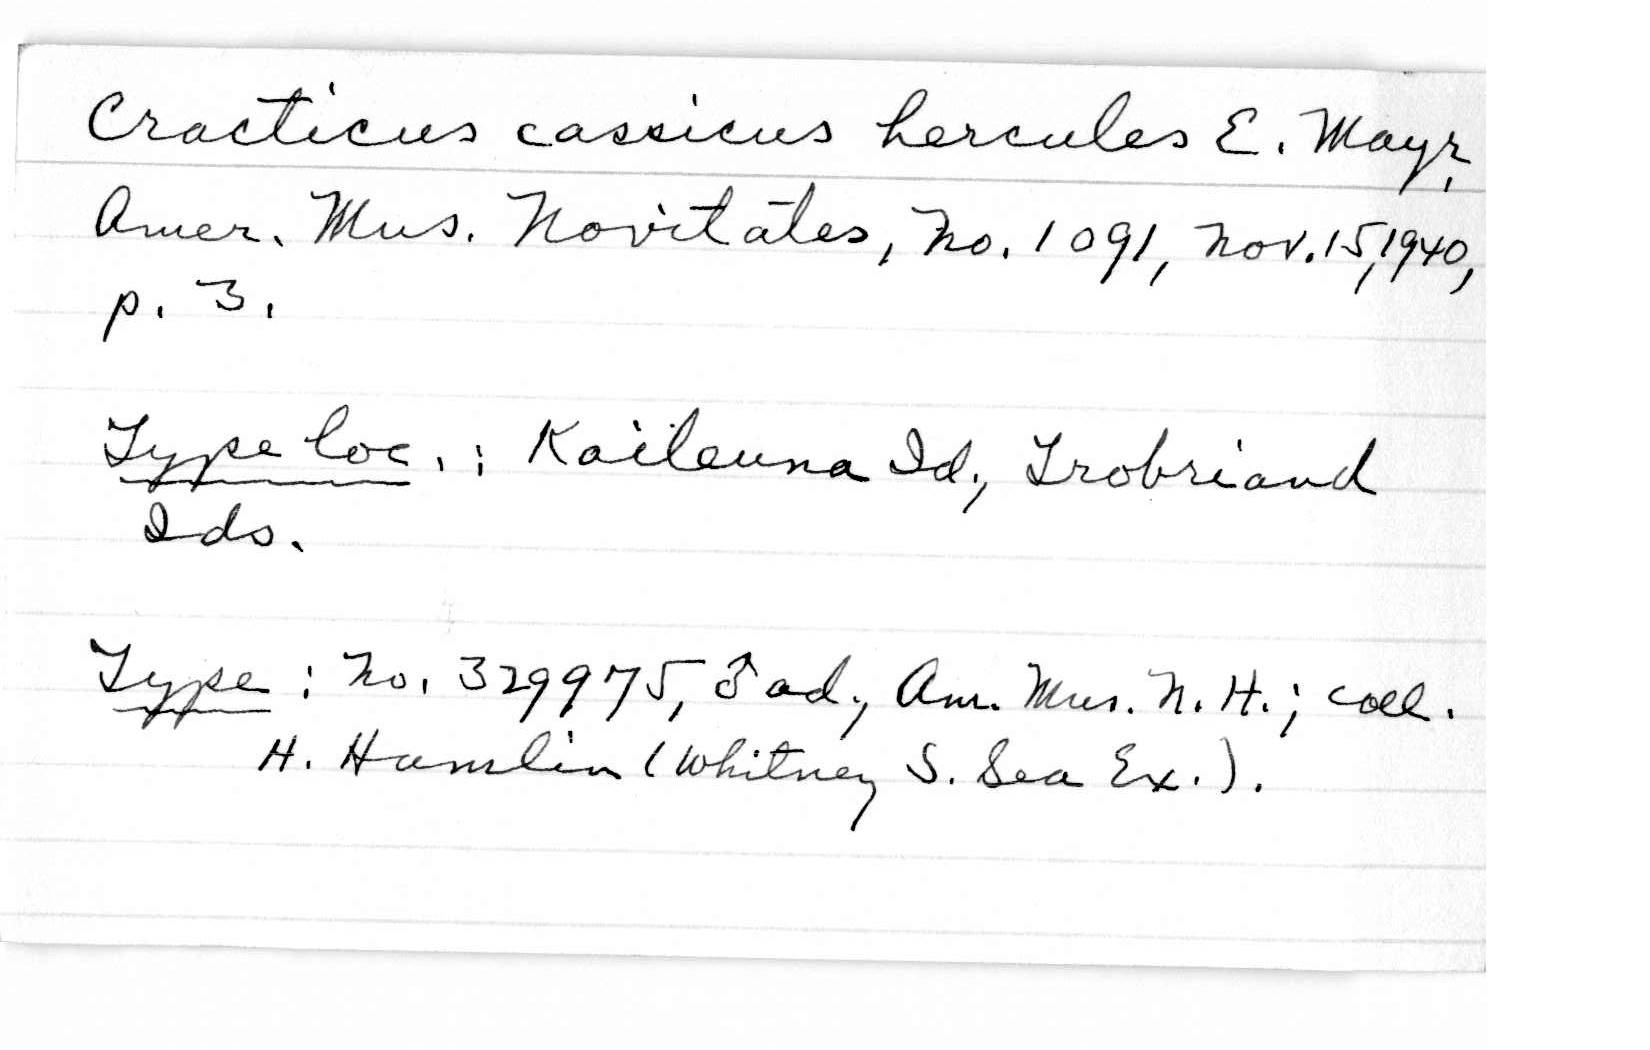 Cracticus cassicus hercules E. Mayr,
Amer. Mus. Novitates, No. 1091, Nov. 15, 1940,
p. 3.
Type loc.: Kaileuna Id., Trobriand
Ids.
Type: No. 329975, ♂ ad., Am. Mus. N. H.; coll.
H. Hamlin (Whitney S. Sea Ex.).